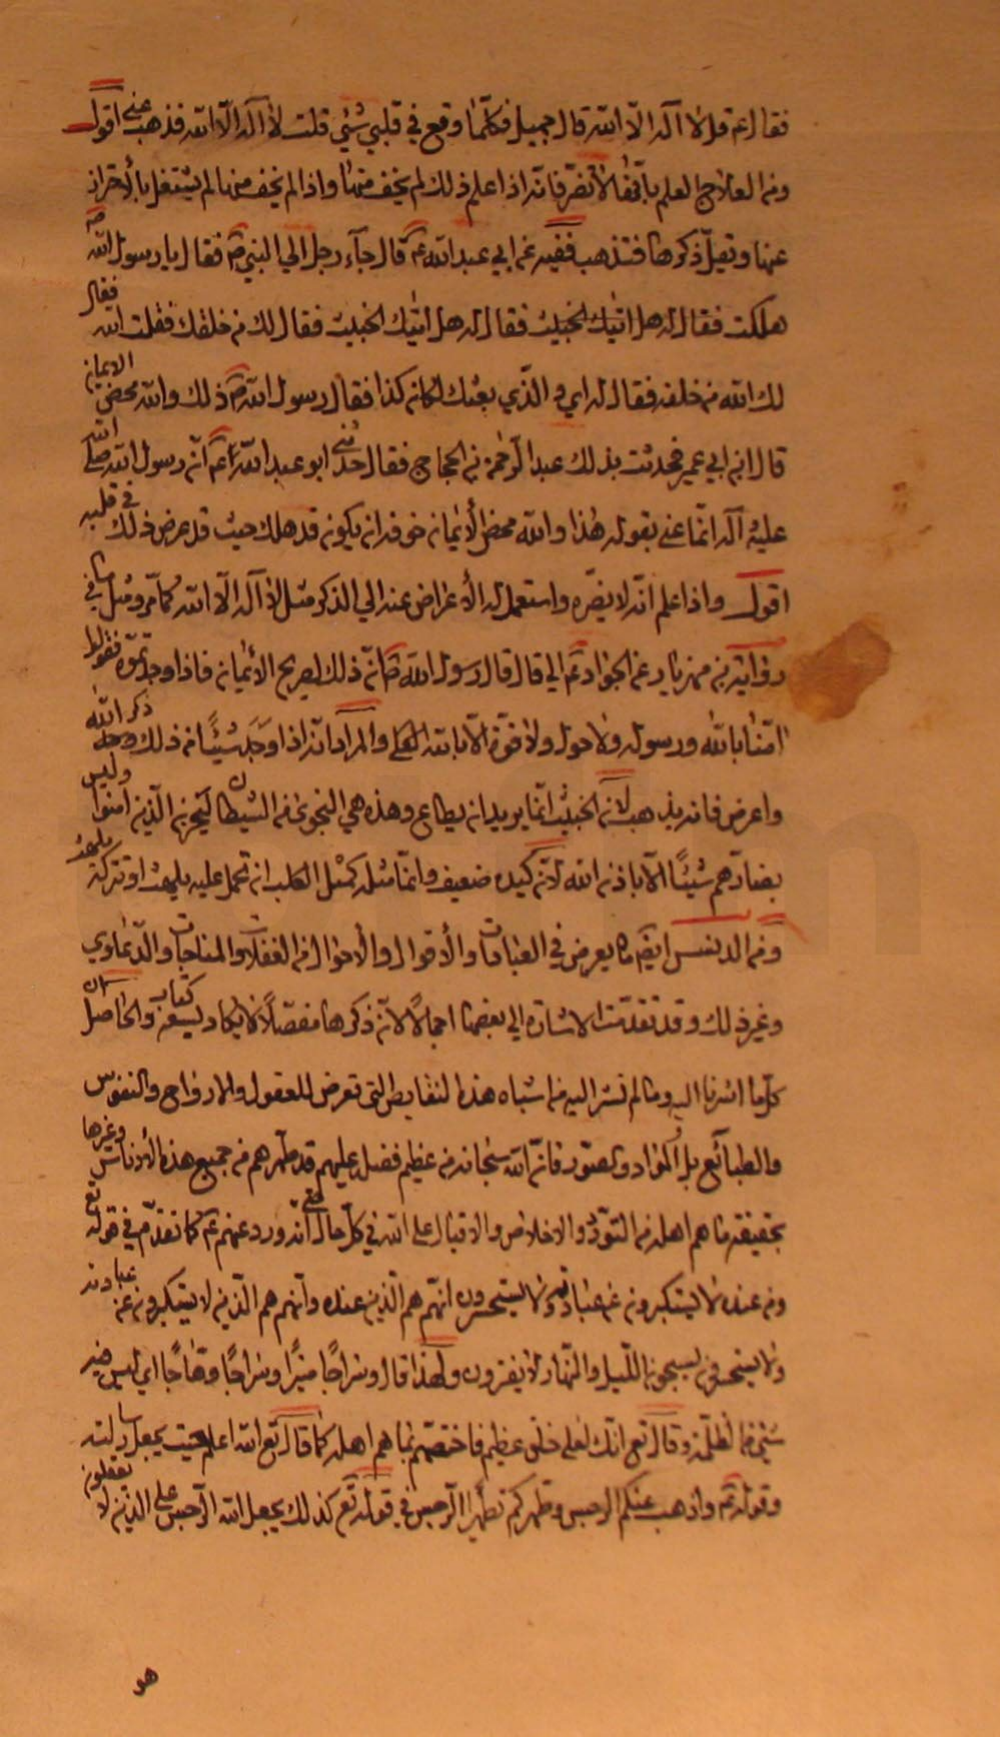 فقال ع قل لا اله الا الله قال جميل فكلما وقع في قلبي شيء قلت لا اله الا الله فذهب عني اقول
ومن العلاج العلم بانها لا تضر فانه اذا علم ذلك لم يخف منها واذا لم يخف منها لم يشتغل بالاحتراز
عنها وتقل ذكرها فتذهب ففيه عن ابي عبد الله ع قال جاء رجل الي النبي ص فقال يا رسول الله ص
هلكت فقال له هل اتيك الخبيث فقال له هل اتيك الخبيث فقال لك من خلقك فقلت الله فقال
لك الله من خلقه فقال له اي و الذي بعثك لكان كذا فقال رسول الله ص ذلك والله محض الايمان
قال ابن ابي عمير فحدثت بذلك عبد الرحمن بن الحجاج فقال حدثني ابو عبد الله ع ان رسول الله صلى الله
عليه اله انما عنى بقوله هذا والله محض الايمان خوفه ان يكون قد هلك حيث قد عرض ذلك في قلبه
اقول واذا علم انه لا يضره واستعمل له الاعراض عنه الي الذكر مثل لا اله الا الله كما مر ومثل ما في
رواية بن مهزيار عن الجواد ع الي قال قال رسول الله ص ان ذلك لصريح الايمان فاذا وجدتموه فقولوا
امنا بالله ورسوله ولا حول ولا قوة الا بالله العلي والمراد انه اذا وجد شيئا من ذلك وجه ذكر الله
واعرض فانه يذهب لان الخبيث انما يريد ان يطاع وهذه هي النجوى من الشيطان ليحزن الذين امنوا وليس
بضارهم شيئا الا باذن الله لان كيده ضعيف وانما مثله كمثل الكلب ان تحمل عليه يلهث او تتركه يلهث
ومن الدنس ايضا ما يعرض في العبادات والاقوال والاحوال من الغفلات والمناجات والدعاوي
وغير ذلك وقد تقدمت الاشارة الي بعضها اجمالا لان ذكرها مفصلا لا يكاد يسعه كتاب والحاصل ان
كل ما اشرنا اليه وما لم نشر اليه من اشباه هذه النقايص التي تعرض للعقول والارواح والنفوس
والطبائع بل المواد والصور فان الله سبحانه من عظيم فضله عليهم قد طهرهم من جميع هذه الادناس وغيرها
بحقيقة ما هم اهله من التودد والاخلاص والاقبال على الله في كل حال حتى انه ورد عنهم ع كما تقدم في قوله تع
ومن عنده لا يستكبرون عن عبادته ولا يستحسرون انهم هم الذين عنده وانهم هم الذين لا يستكبرون عن عبادته
ولا يستحسرون يسبحون الليل والنهار لا يفترون ولهذا قال وسراجا منيرا وسراجا وهاجا اي ليس فيه
شيء من الظلمة وقال تع انك لعلى خلق عظيم فاختصهم بما هم اهله كما قال تع الله اعلم حيث يجعل رسالته
وقوله ع واذهب عنكم الرجس وطهركم تطهيرا الرجس في قوله تع كذلك يجعل الله الرجس على الذين لا يعقلون
هو